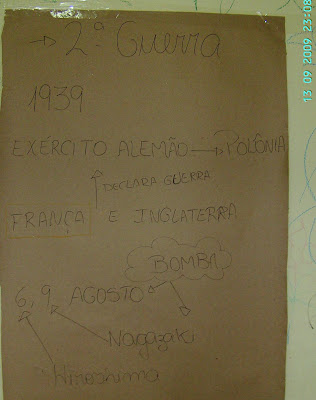 → 2ª Guerra
1939
EXÉRCITO ALEMÃO → POLÔNIA
DECLARA GUERRA
FRANÇA E INGLATERRA
BOMBA
6, 9 AGOSTO
Nagazaki
Hiroshima
13 09 2009 23:08